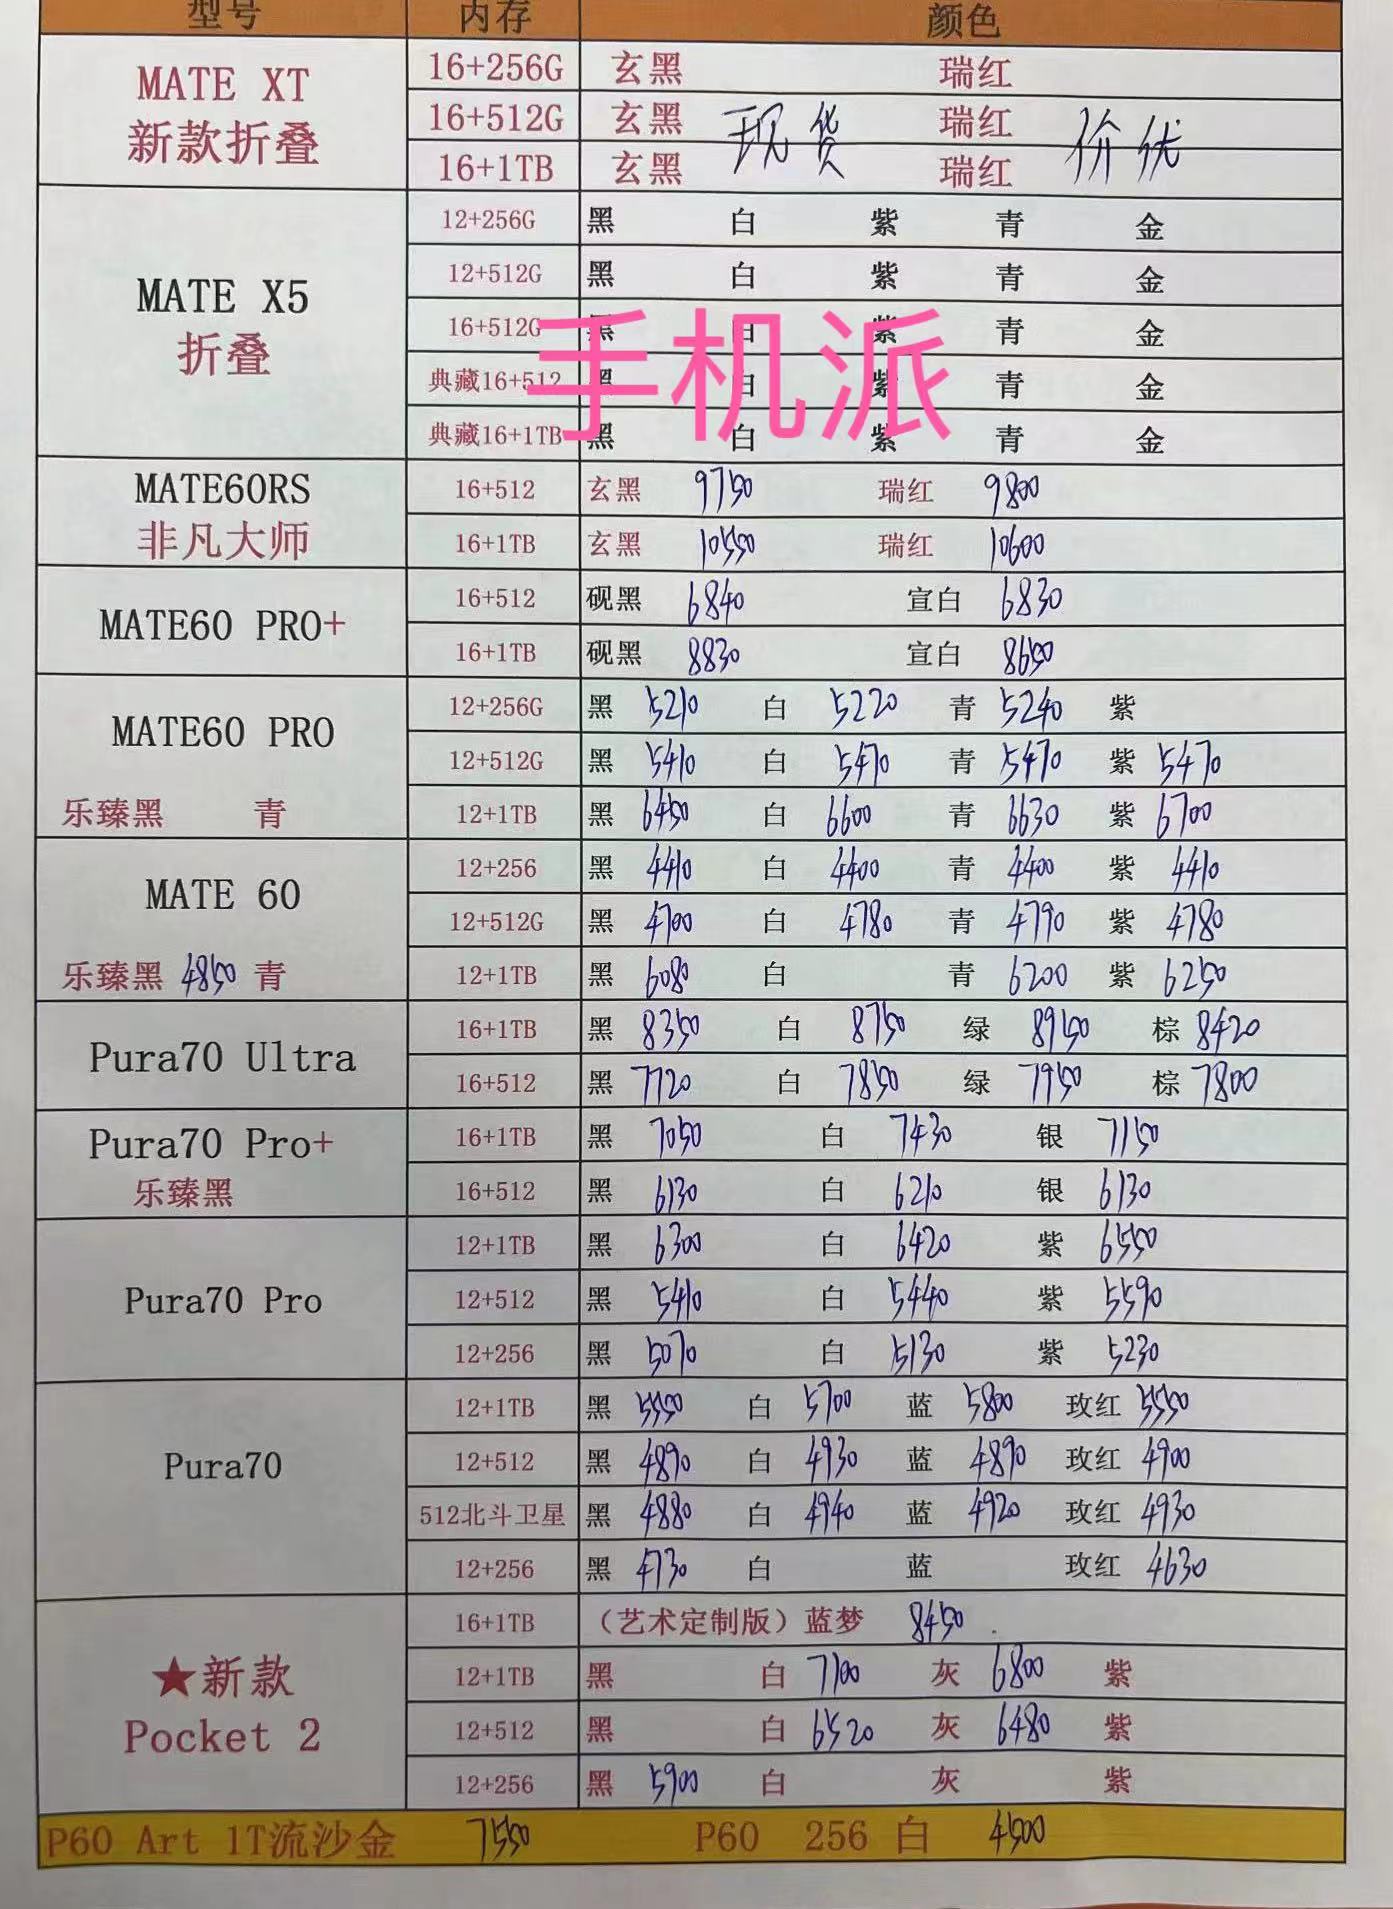 型号 内存 颜色
MATE XT 新款折叠 16+256G 玄黑 瑞红
16+512G 玄黑 现货 瑞红 价优
16+1TB 玄黑 瑞红
MATE X5 折叠 12+256G 黑 白 紫 青 金
12+512G 黑 白 紫 青 金
16+512G 黑 白 紫 青 金
手机派
典藏16+512 黑 白 紫 青 金
典藏16+1TB 黑 白 紫 青 金
MATE60RS 非凡大师 16+512 玄黑 9750 瑞红 9800
16+1TB 玄黑 10550 瑞红 10600
MATE60 PRO+ 16+512 砚黑 6840 宣白 6830
16+1TB 砚黑 8830 宣白 8650
MATE60 PRO 12+256G 黑 5210 白 5220 青 5240 紫
12+512G 黑 5410 白 5470 青 5470 紫 5470
乐臻黑 青 12+1TB 黑 6450 白 6600 青 6630 紫 6700
MATE 60 12+256 黑 4410 白 4400 青 4400 紫 4410
12+512G 黑 4700 白 4780 青 4790 紫 4780
乐臻黑 4850 青 12+1TB 黑 6080 白 青 6200 紫 6250
Pura70 Ultra 16+1TB 黑 8350 白 8750 绿 8950 棕 8420
16+512 黑 7720 白 7850 绿 7950 棕 7800
Pura70 Pro+ 16+1TB 黑 7050 白 7430 银 7150
乐臻黑 16+512 黑 6130 白 6210 银 6130
Pura70 Pro 12+1TB 黑 6300 白 6420 紫 6550
12+512 黑 5410 白 5440 紫 5590
12+256 黑 5070 白 5130 紫 5230
Pura70 12+1TB 黑 5550 白 5700 蓝 5800 玫红 5550
12+512 黑 4890 白 4930 蓝 4890 玫红 4900
512北斗卫星 黑 4880 白 4940 蓝 4920 玫红 4930
12+256 黑 4730 白 蓝 玫红 4630
★新款 Pocket 2 16+1TB （艺术定制版）蓝梦 8450
12+1TB 黑 白 7100 灰 6800 紫
12+512 黑 白 6520 灰 6480 紫
12+256 黑 5900 白 灰 紫
P60 Art 1T流沙金 7550 P60 256 白 4500